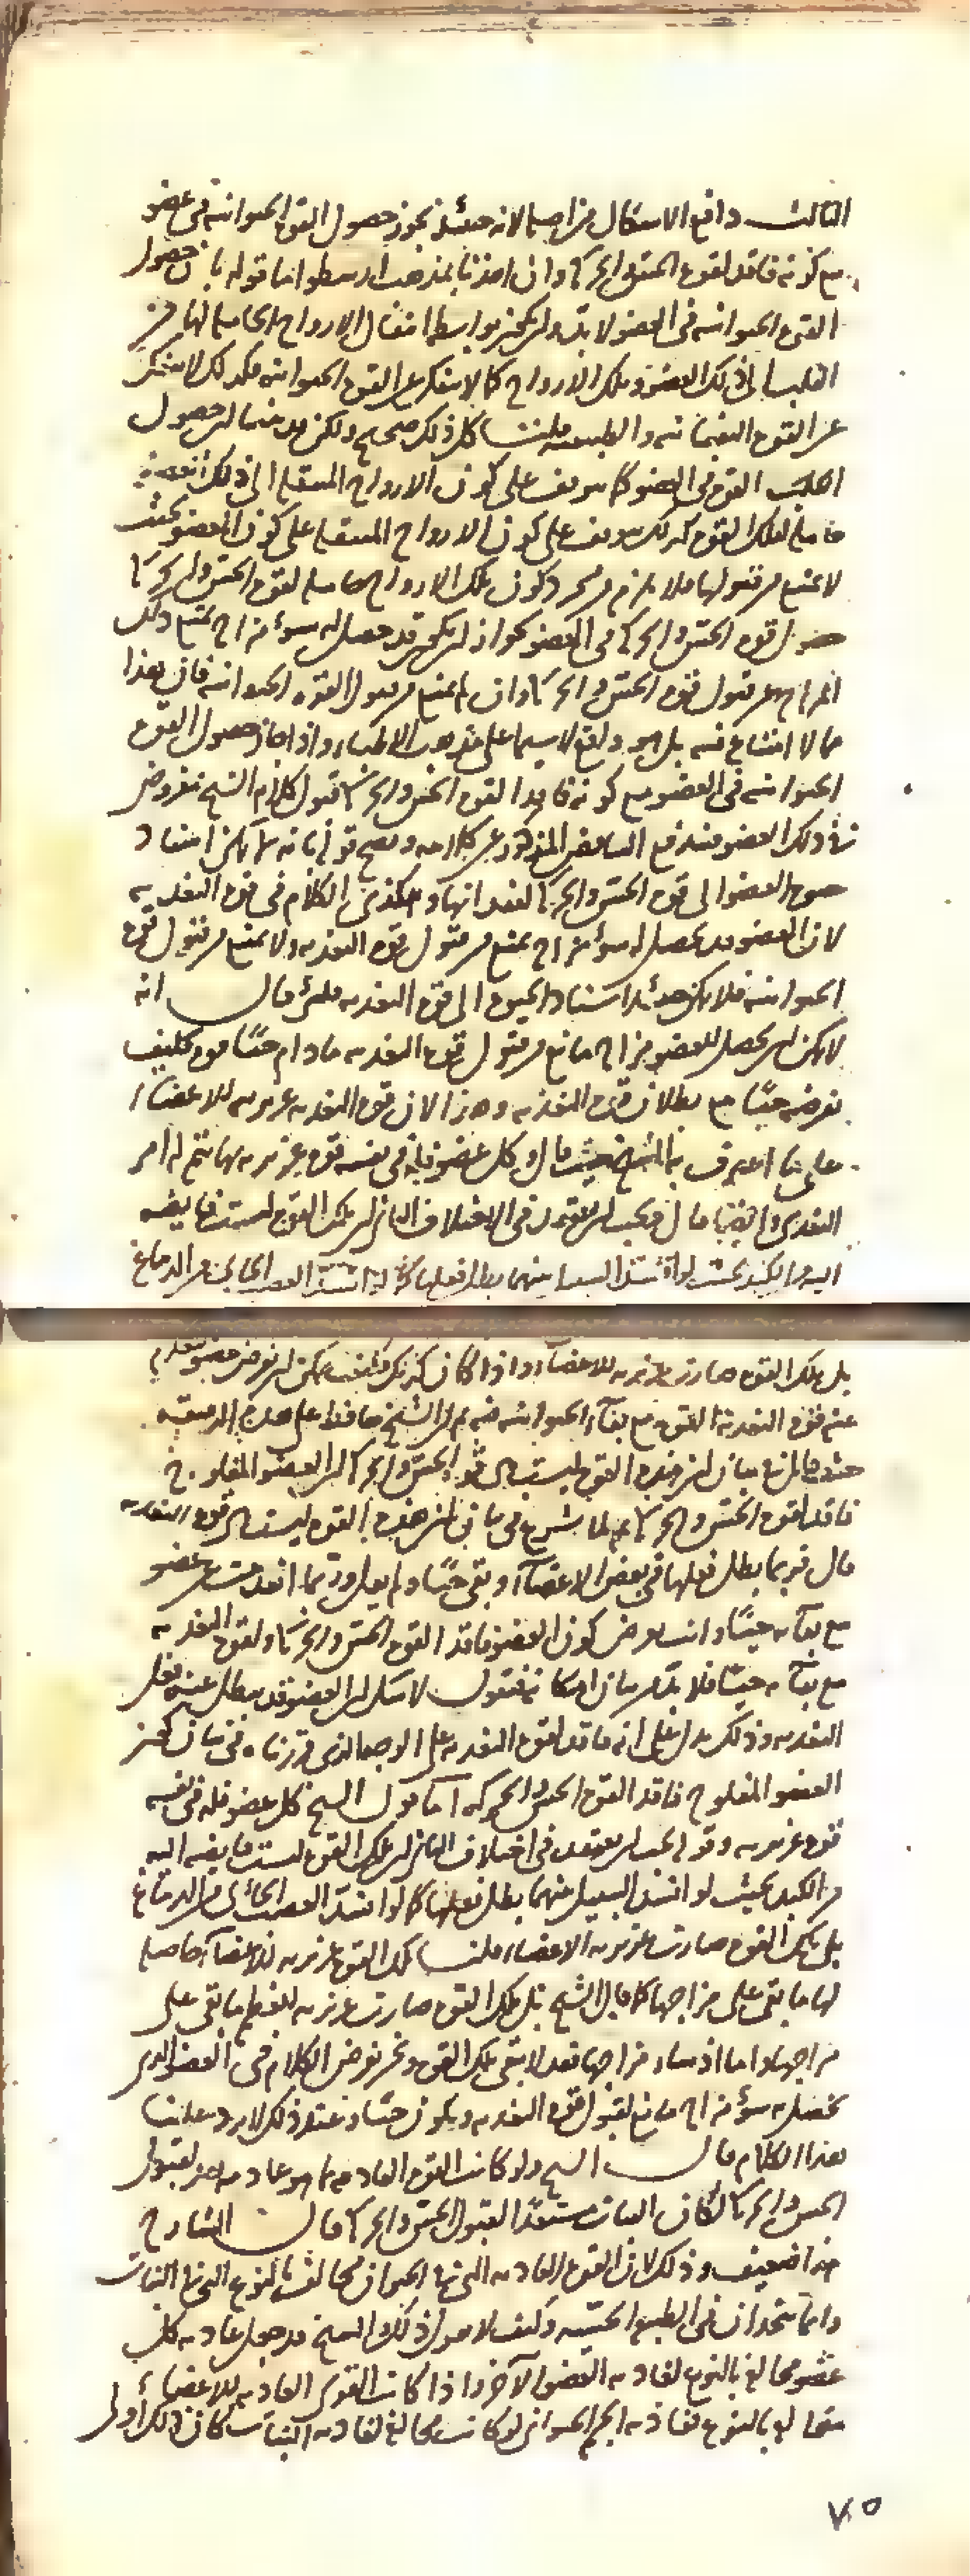 الثالث دافع الاشكال من اصله لانه حينئذ يجوز حصول القوة الحيوانية فى عضو
مع كونه فاقدا لقوة الحس والحركة وان اخذنا بمذهب ارسطو اما قوله بان حصول
القوة الحيوانية فى العضو لا بد وان يكون بواسطة انتقال الارواح الحاملة لها من
القلب الى ذلك العضو وتلك الارواح كما لا تنفك عن القوة الحيوانية فكذلك لا تنفك
عن القوة النفسانية والطبيعية قلت كل ذلك صحيح ولكن قد بينا ان حصول
القوة فى العضو كما يتوقف على كون الارواح المنتقلة الى ذلك العضو
حاملة لتلك القوة كذلك يتوقف على كون العضو بحيث
لا يمتنع من قبولها فلا يلزم من مجرد كون تلك الارواح حاملة لقوة الحس والحركة
حصول قوة الحس والحركة فى العضو لجواز ان يكون قد حصل له سوء مزاج يمنع ذلك
المزاج من قبول قوة الحس والحركة وان لم يمنع من قبول القوة الحيوانية فان هذا
مما لا امتناع فيه بل هو واقع لا سيما على مذهب الاطباء واذا جاز حصول القوة
الحيوانية فى العضو مع كونه فاقدا لقوة الحس والحركة فنقول كلام الشيخ مفروض
فى ذلك العضو فيندفع التناقض المذكور عن كلامه ويصح قوله بانه لا يمكن استناد
حيوة العضو الى قوة الحس والحركة لفقدانها وهكذى الكلام فى قوة التغذية
لان العضو قد يحصل له سوء مزاج يمنع من قبول قوة التغذية ولا يمنع من قبول قوة
الحيوانية فلا يمكن حينئذ استناد الحيوة الى قوة التغذية فلئن قال انه
لا يمكن ان يحصل للعضو مزاج مانع من قبول قوة التغذية ما دام حيا فكيف
نفرضه حيا مع بطلان قوة التغذية وهذا لان قوة التغذية غريزية للاعضاء
على ما اعترف به الشيخ حيث قال وكل عضو فله فى نفسه قوة غريزية بها يتم له امر
التغذى وايضا قال فيجب ان يعتقد فى الاختلاف الثانى ان تلك القوة ليست فايضة
اليه من الكبد بحيث لو انسد السبيل بينهما بطل فعلها كما لو انسد العصب الجائى من الدماغ
بل تلك القوة صارت غريزية للاعضاء واذا كان كذلك فكيف يمكن ان نفرض عضوا
عنه قوة التغذية مع بقاء الحيوانية فيه ثم ان الشيخ حافظ على هذه الدقيقة
فى بيان ان هذه القوة ليست هى قوة الحس والحركة ان العضو المفلوج
فاقد لقوة الحس والحركة ثم لما شرع فى بيان ان هذه القوة ليست هى قوة التغذية
قال فربما بطل فعلها فى بعض الاعضاء وبقى حيا ولم يقل وربما انعدمت عن عضو
مع بقائه حيا وانت تفرض كون العضو فاقدا لقوة الحس والحركة ولقوة التغذية
مع بقائه حيا فلا بد من بيان امكانه فنقول لا شك ان العضو قد يبطل عنه فعل
التغذية وذلك يدل على انه فاقد لقوة التغذية على الوجه الذى قررناه فى بيان كون
العضو المفلوج فاقدا لقوة الحس والحركة اما قول الشيخ كل عضو فله فى نفسه
قوة غريزية وقوله يجب ان يعتقد فى اختلاف الثانى ان تلك القوة ليست فايضة اليه
من الكبد بحيث لو انسد السبيل بينهما بطل فعلها كما لو انسد العصب الجائى من الدماغ
بل تلك القوة صارت غريزية الاعضاء قلت تلك القوة غريزية للاعضاء حاصلة
لها ما بقى على مزاجها كما قال الشيخ بل تلك القوة صارت غريزية للعظم ما بقى على
مزاجها واما اذا فسد مزاجها فقد لا تبقى تلك القوة ونحن نفرض الكلام فى العضو الذى
يحصل به سوء مزاج مانع لقبول قوة التغذية ويكون حيا وعند ذلك لا يرد علينا
هذا الكلام قال الشيخ ولو كانت القوة الغاذية بما هو غاذية تعد لقبول
الحس والحركة لكان النبات مستعدا لقبول الحس والحركة قال الشارح
هذا ضعيف وذلك لان القوة الغاذية التى فى الحيوان مخالف بالنوع التى فى النبات
وانما يتحدان فى الطبيعة الجنسية وكيف لا نقول ذلك والشيخ قد جعل غاذية كل
عضو مخالفة بالنوع لغاذية العضو الآخر واذا كانت القوى الغاذية للاعضاء
متخالفة بالنوع فغاذية الجسم الحيوانى لو كانت مخالفة لغاذية النبات كان ذلك اولى
٧٥